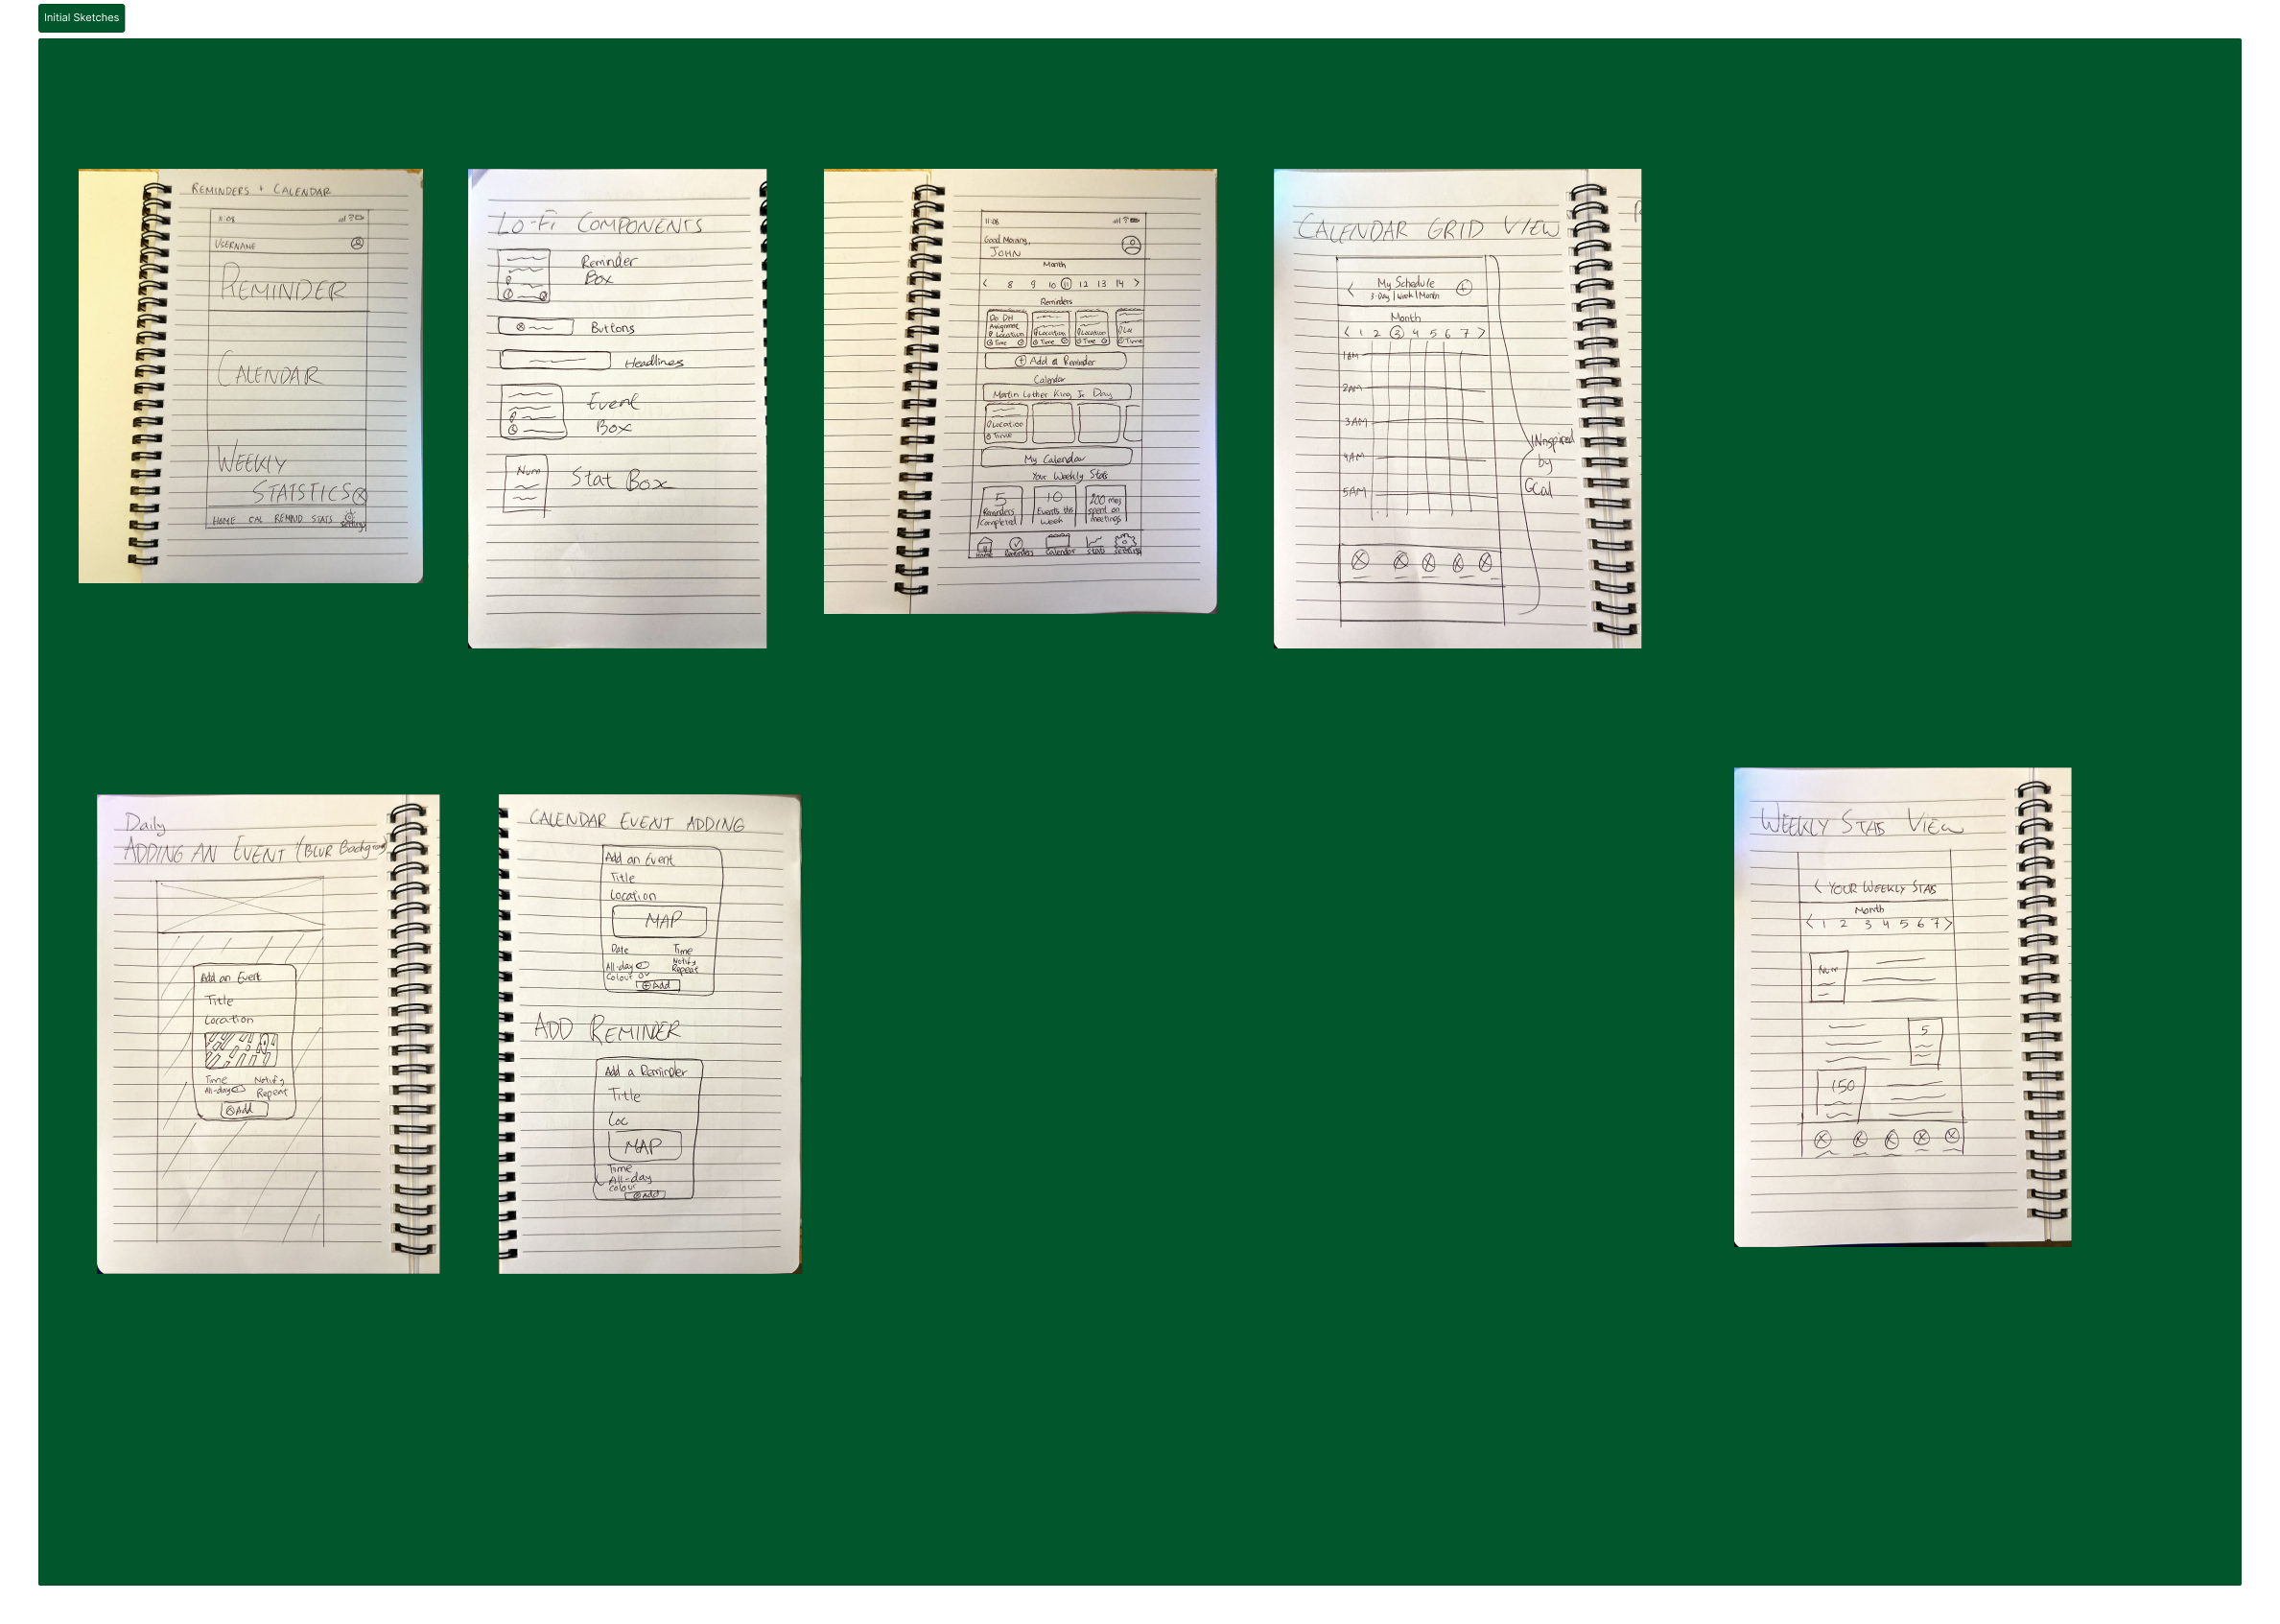 Initial Sketches
REMINDERS + CALENDAR
11:08
USERNAME
REMINDER
CALENDAR
WEEKLY
STATSTICS
HOME CAL REMIND STATS settings
LO-Fi COMPONENTS
Reminder
Box
Buttons
Headlines
Event
Box
Num
Stat Box
11:08
Good Morning,
JOHN
Month
< 8 9 10 11 12 13 14 >
Reminders
Do DH
Assignment
Location Location Location
Time Time Time Time
+ Add a Reminder
Calendar
Martin Luther King Jr Day
Location
Time
My Calendar
Your Weekly Stats
5 10 200 mins
Reminders Events this spent on
Completed week meetings
Home Reminders Calendar Stats Settings
CALENDAR GRID VIEW
< My Schedule +
3-Day | Week | Month
Month
< 1 2 3 4 5 6 7 >
1AM
2AM
3AM
4AM
5AM
INnspired
by
GCal
Daily
ADDING AN EVENT (BLUR Background
Add an Event
Title
Location
Time Notify
All-day Repeat
Add
CALENDAR EVENT ADDING
Add an Event
Title
Location
MAP
Date Time
All-day Notify
Colour Repeat
+ Add
ADD REMINDER
Add a Reminder
Title
Loc
MAP
Time
All-day
Colour
Add
WEEKLY STATS VIEW
< YOUR WEEKLY STATS
Month
< 1 2 3 4 5 6 7 >
Num
5
150